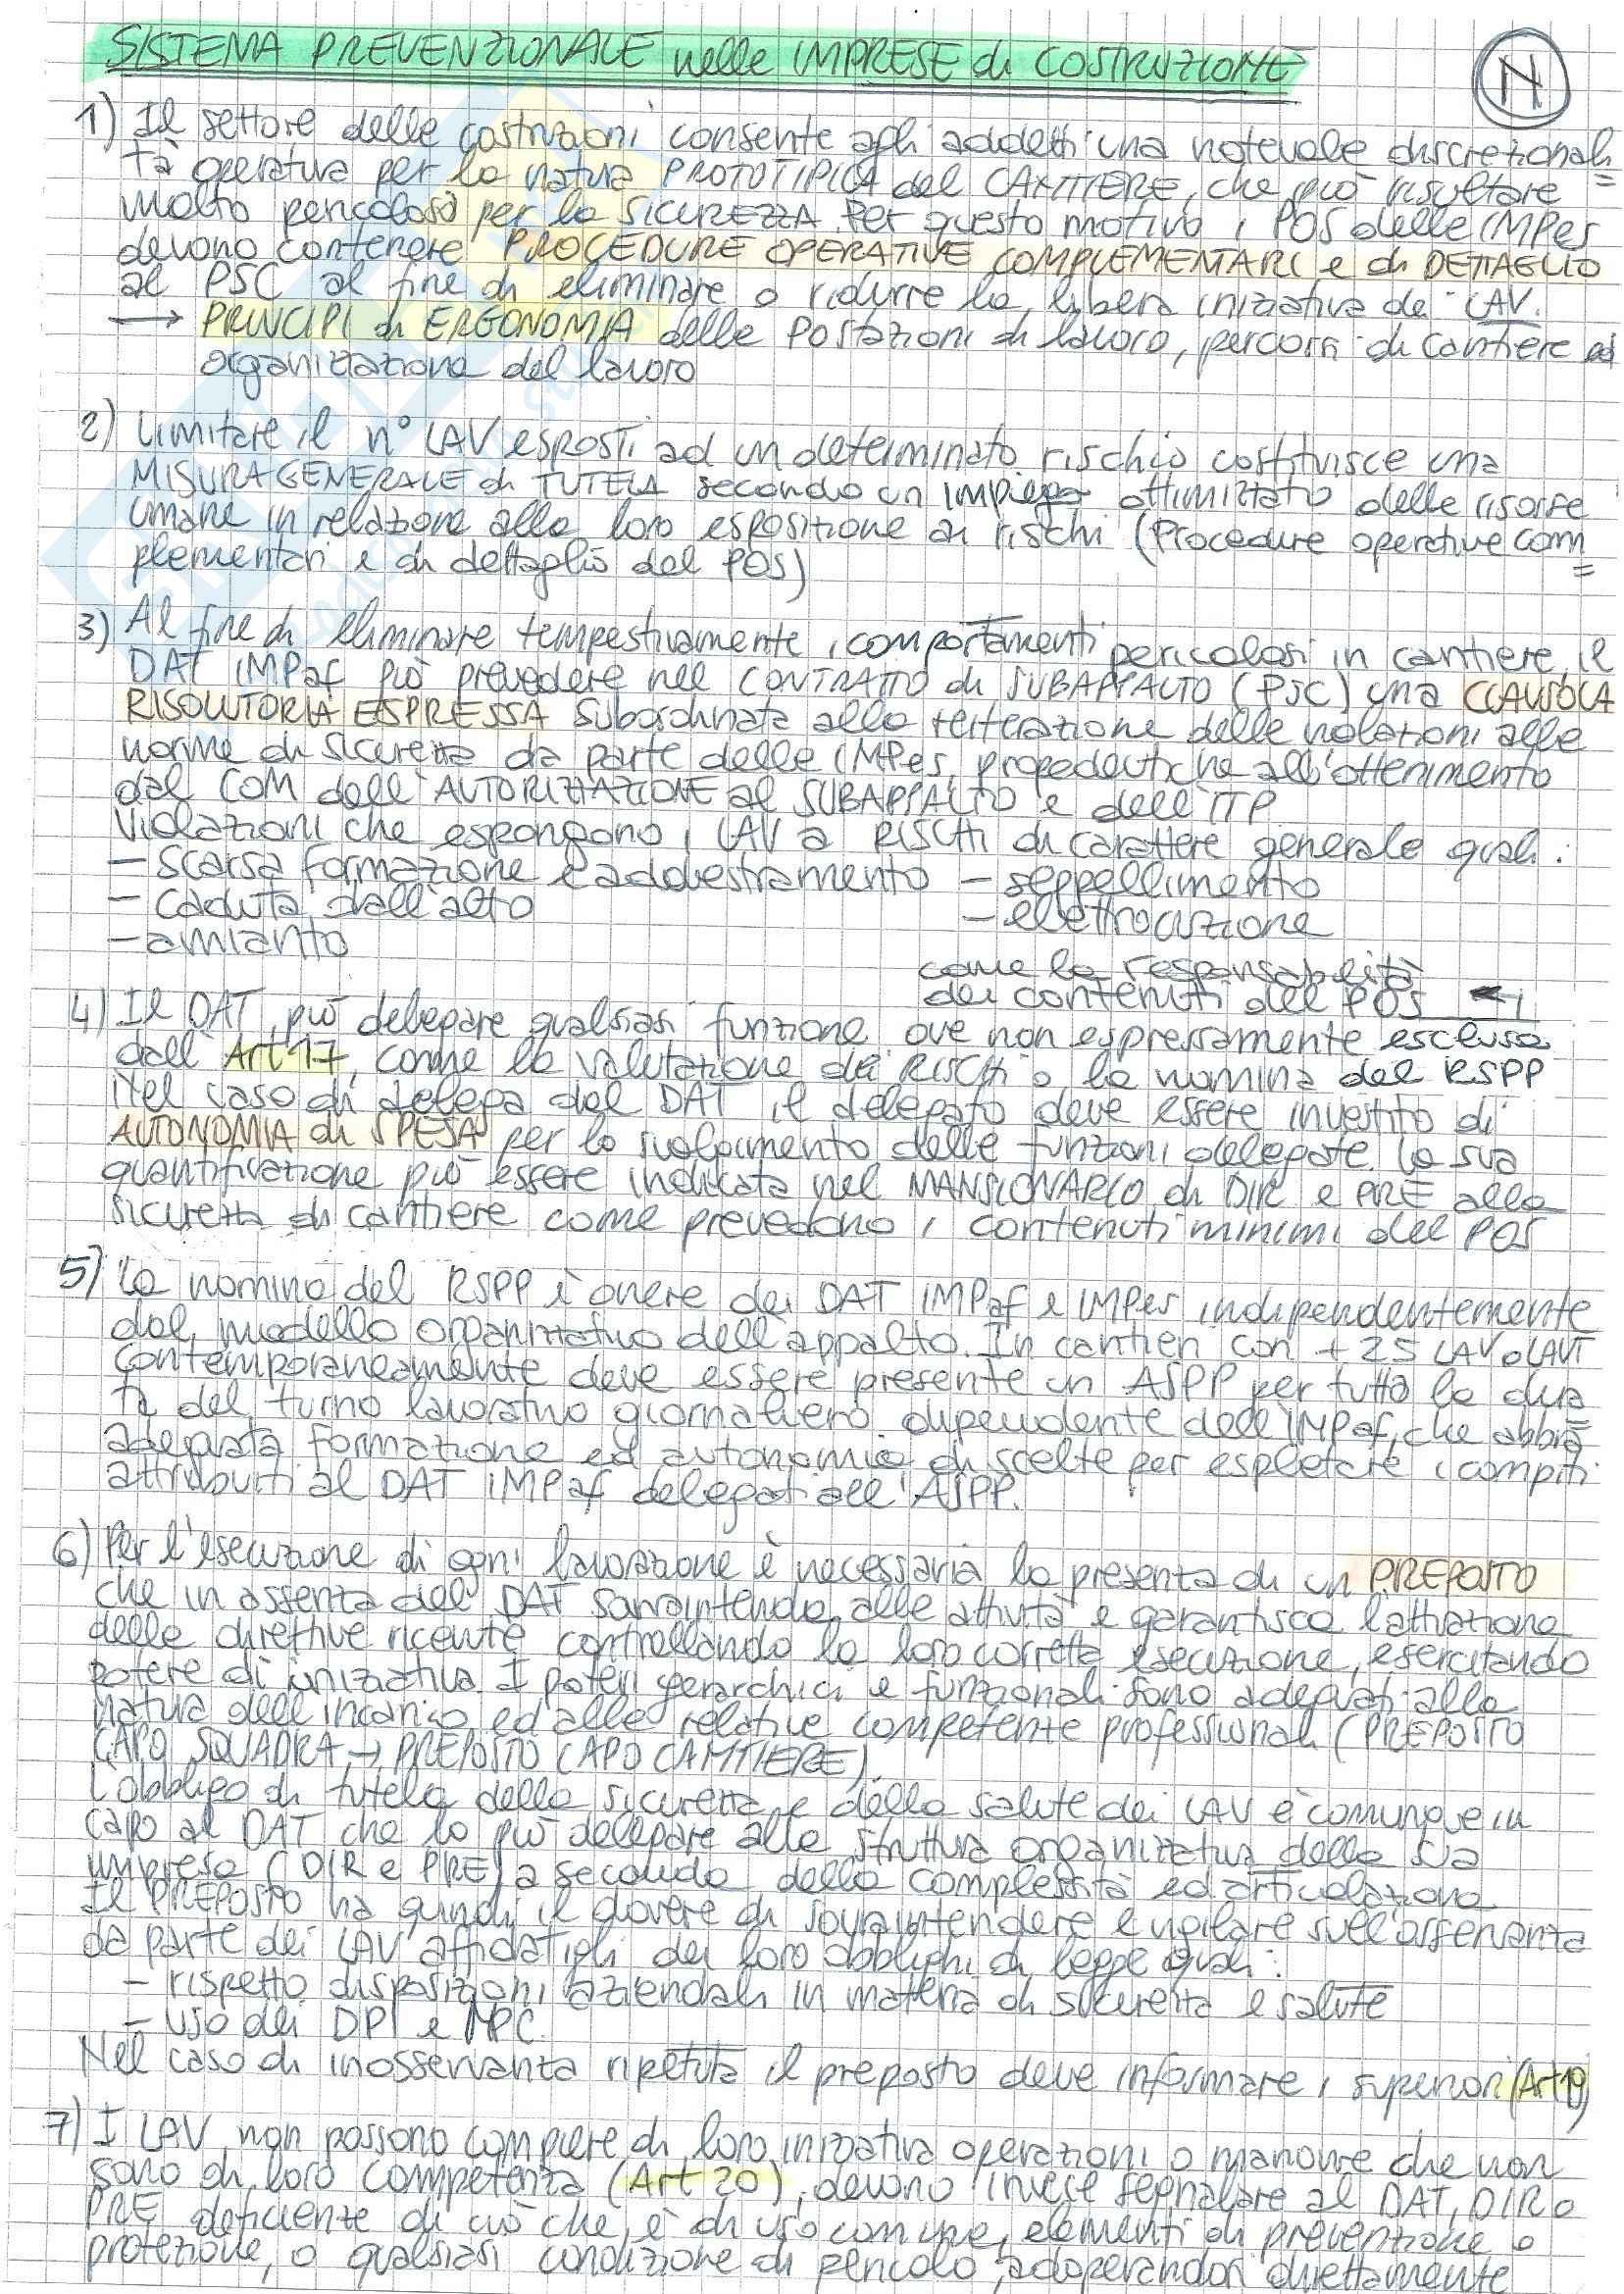 SISTEMA PREVENZIONALE nelle IMPRESE di COSTRUZIONE
N
1) Il settore delle costruzioni consente agli addetti una notevole discrezionali=
tà operativa per la natura PROTOTIPICA del CANTIERE, che può risultare
molto pericolosa per la SICUREZZA. Per questo motivo i POS delle IMPes
devono contenere PROCEDURE OPERATIVE COMPLEMENTARI e di DETTAGLIO
al PSC al fine di eliminare o ridurre la libera iniziativa dei LAV.
→ PRINCIPI di ERGONOMIA delle Postazioni di lavoro, percorsi di cantiere ed
organizzazione del lavoro
2) Limitare il n° LAV esposti ad un determinato rischio costituisce una
MISURA GENERALE di TUTELA secondo un impiego ottimizzato delle risorse
umane in relazione alla loro esposizione ai rischi (Procedure operative com=
plementari e di dettaglio del POS)
3) Al fine di eliminare tempestivamente i comportamenti pericolosi in cantiere, il
DAT IMPaf può prevedere nel CONTRATTO di SUBAPPALTO (PSC) una CLAUSOLA
RISOLUTORIA ESPRESSA subordinata alla reiterazione delle violazioni alle
norme di sicurezza da parte delle IMPes, propedeutiche all'ottenimento
dal COM dell'AUTORIZZAZIONE al SUBAPPALTO e dell'ITP
Violazioni che espongono i LAV a RISCHI di carattere generale quali:
- scarsa formazione e addestramento - seppellimento
- caduta dall'alto - elettrocuzione
- amianto
come la responsabilità
dei contenuti del POS ←
4) Il DAT può delegare qualsiasi funzione ove non espressamente esclusa
dall'Art 17, come la valutazione dei RISCHI o la nomina del RSPP
Nel caso di delega del DAT il delegato deve essere investito di
AUTONOMIA di SPESA per lo svolgimento delle funzioni delegate. La sua
quantificazione può essere indicata nel MANSIONARIO di DIR e PRE alla
sicurezza di cantiere come prevedono i contenuti minimi del POS
5) La nomina del RSPP è onere dei DAT IMPaf e IMPes indipendentemente
dal modello organizzativo dell'appalto. In cantieri con + 25 LAV o LAVT
contemporaneamente deve essere presente un ASPP per tutta la dura
ta del turno lavorativo giornaliero dipendente dell'IMPaf, che abbia
adeguata formazione ed autonomia di scelte per espletare i compiti
attribuiti al DAT IMPaf delegati all'ASPP.
6) Per l'esecuzione di ogni lavorazione è necessaria la presenza di un PREPOSTO
che in assenza del DAT sovraintenda alle attività e garantisca l'attivazione
delle direttive ricevute controllando la loro corretta esecuzione, esercitando
potere di iniziativa. I poteri gerarchici e funzionali sono adeguati alla
natura dell'incarico ed alle relative competenze professionali (PREPOSTO
CAPO SQUADRA → PREPOSTO CAPO CANTIERE).
L'obbligo di tutela della sicurezza e della salute dei LAV è comunque in
capo al DAT che lo può delegare alla struttura organizzativa della sua
impresa (DIR e PRE) a seconda della complessità ed articolazione
Il PREPOSTO ha quindi il dovere di sovraintendere e vigilare sull'osservanza
da parte dei LAV affidatigli dei loro obblighi di legge quali:
- rispetto disposizioni aziendali in materia di sicurezza e salute
- uso dei DPI e MPC.
Nel caso di inosservanza ripetuta il preposto deve informare i superiori (Art 19)
7) I LAV non possono compiere di loro iniziativa operazioni o manovre che non
sono di loro competenza (Art 20), devono invece segnalare al DAT, DIR o
PRE deficienze di ciò che è di uso comune, elementi di prevenzione o
protezione, o qualsiasi condizione di pericolo, adoperandosi direttamente